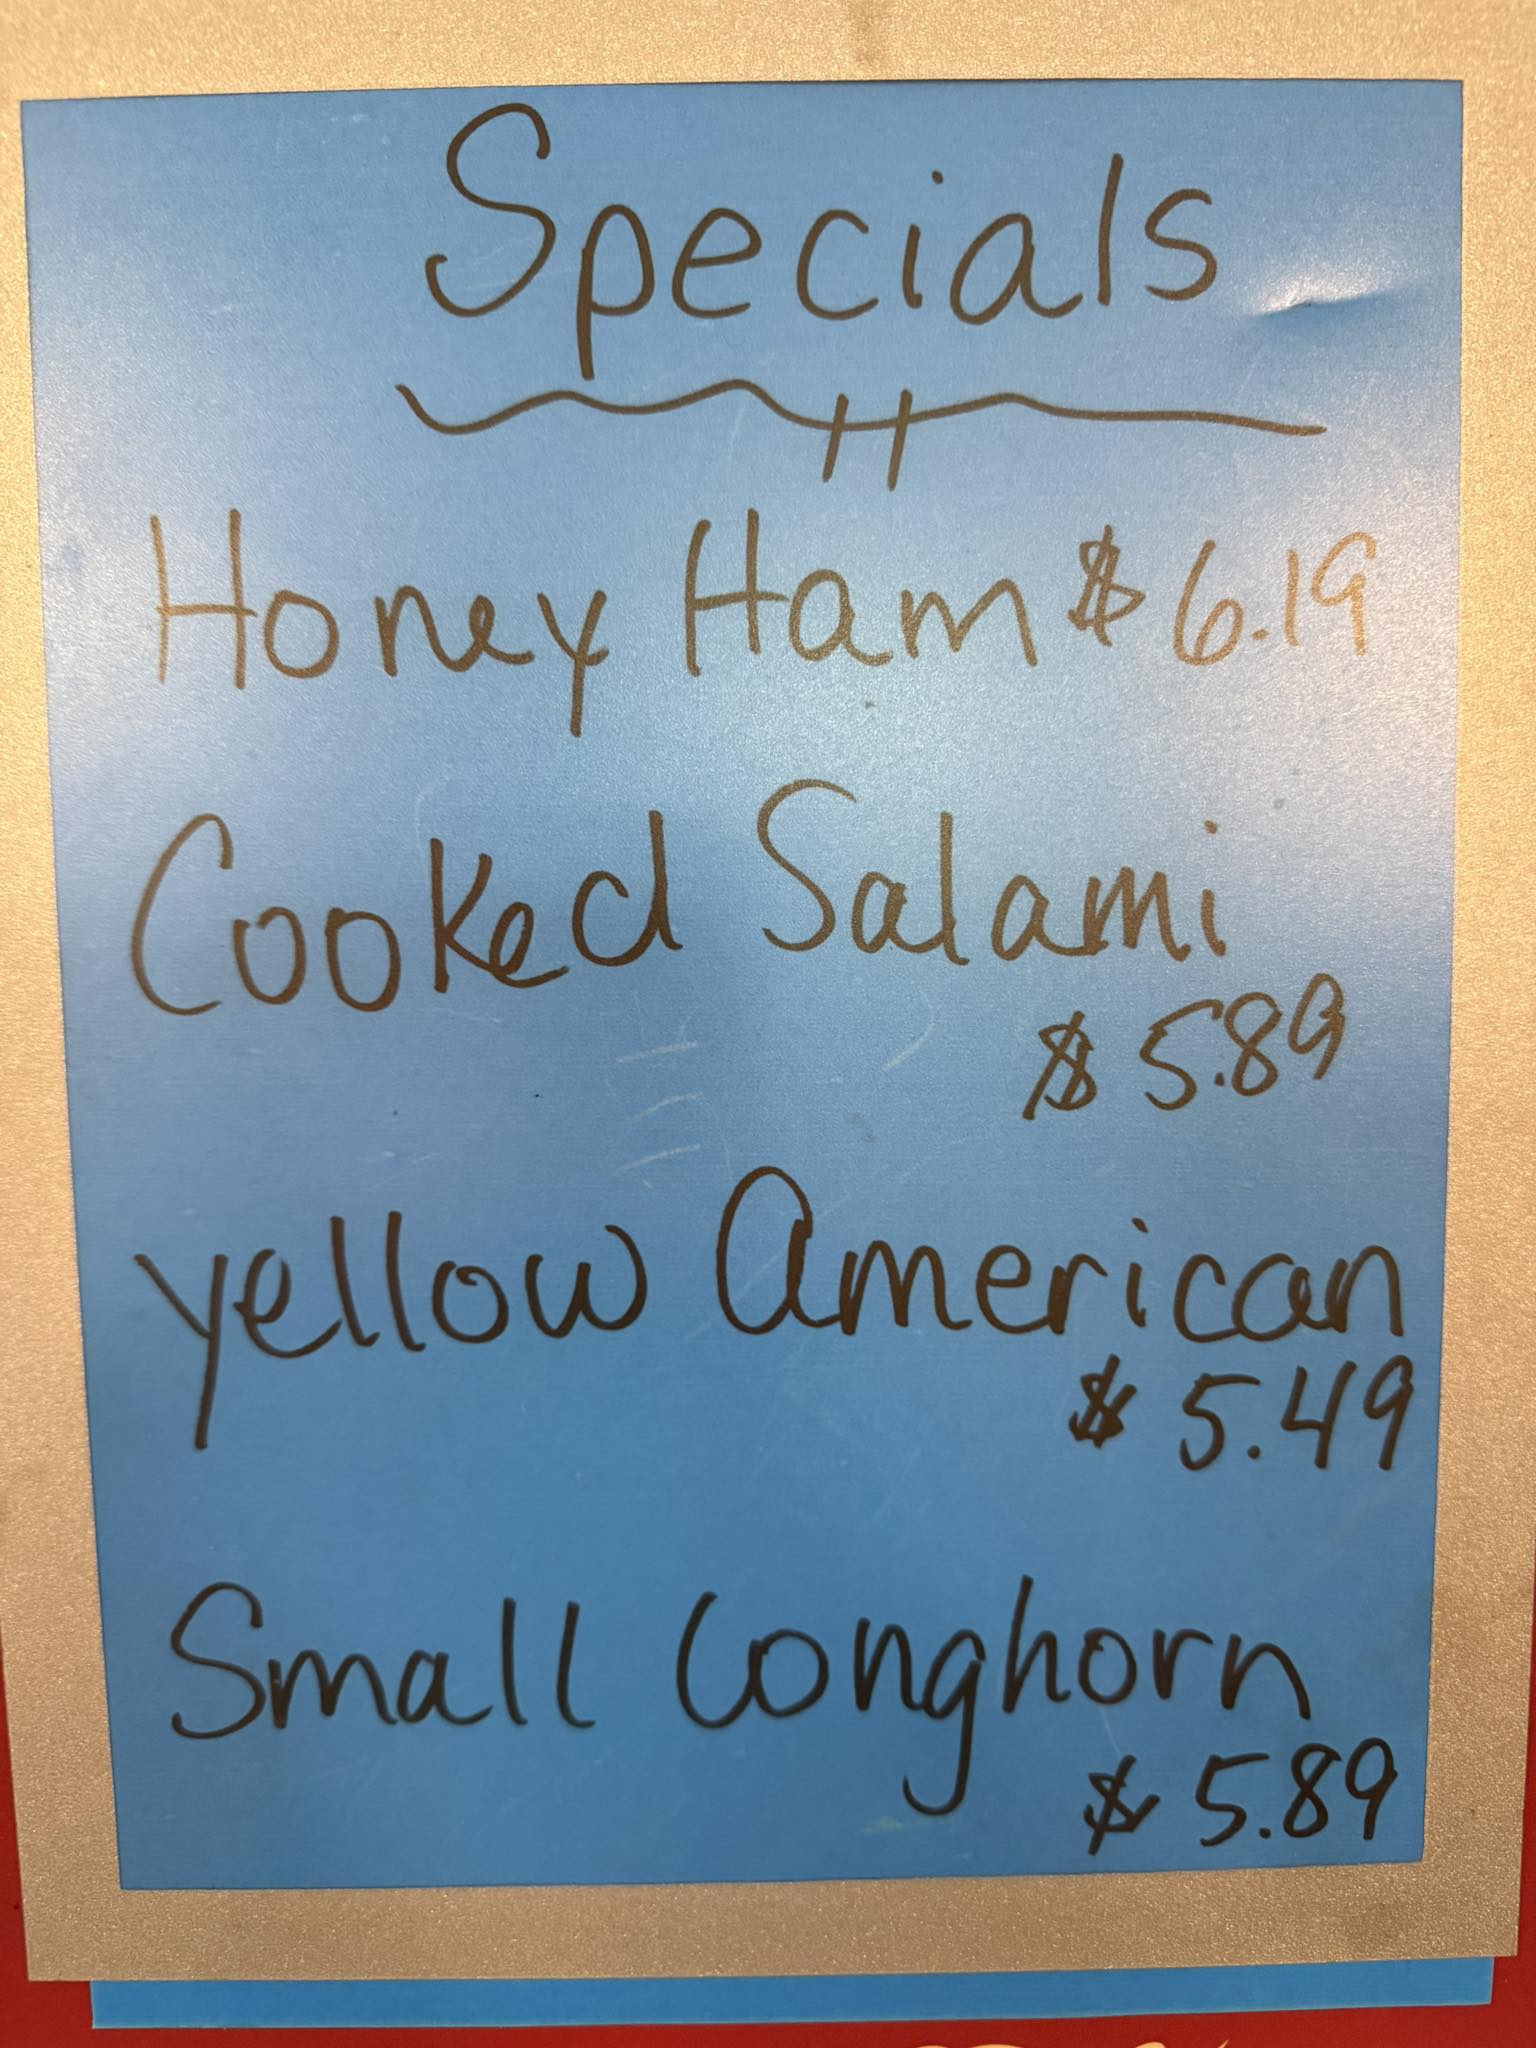 Specials
Honey Ham $6.19
Cooked Salami
$5.89
yellow American
$5.49
Small Longhorn
$5.89